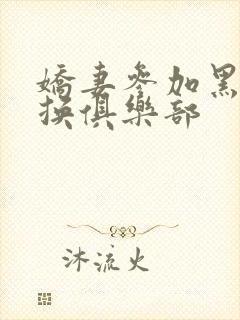 嬌妻參加黑
换俱樂部
沐流火